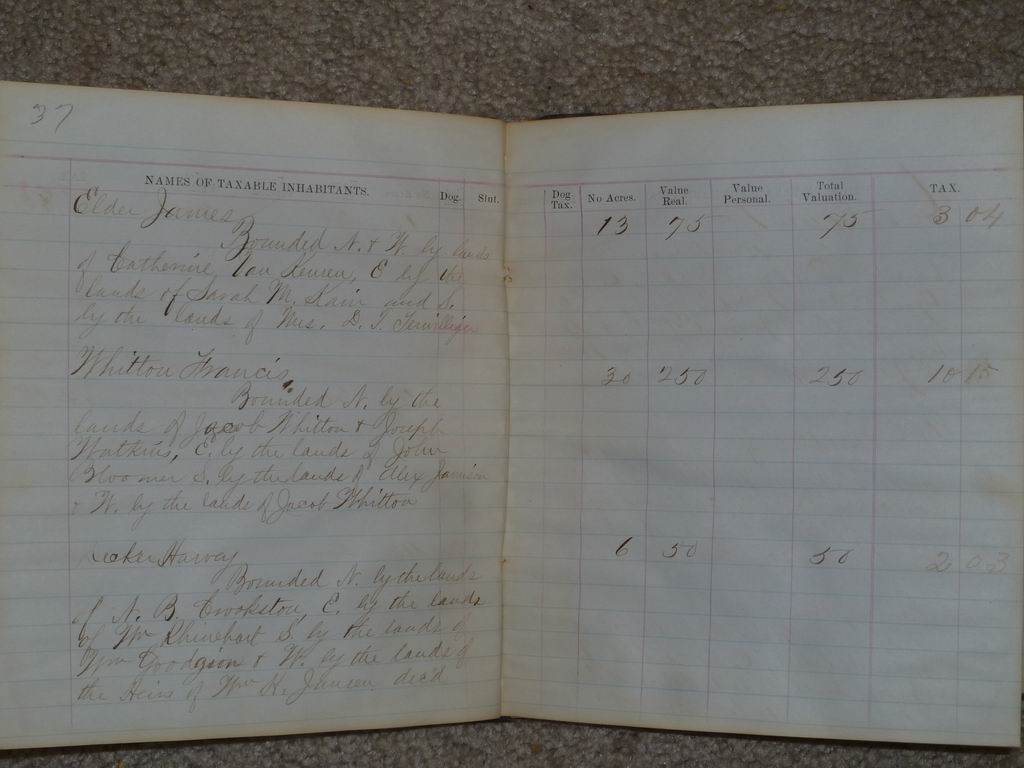 37
NAMES OF TAXABLE INHABITANTS. Dog. Slut. Dog Tax. No Acres. Value Real. Value Personal. Total Valuation. TAX.
Elder James 13 75 75 3 04
Bounded N. & W. by lands
of Catherine Van Keuren, E by the
lands of Sarah M. Kain and S.
by the lands of Mrs. D. T. Terwilliger
Whitton Francis 30 250 250 10 15
Bounded N. by the
lands of Jacob Whitton & Joseph
Watkins, E. by the lands of John
Bloomer S. by the lands of Alex Jamison
& W. by the lands of Jacob Whitton
Harvey 6 50 50 2 03
Bounded N. by the lands
of N. B. Crookston, E. by the lands
of Wm Rhinehart S. by the lands of
Wm Goodgion & W. by the lands of
the Heirs of Wm H. Jansen dec'd